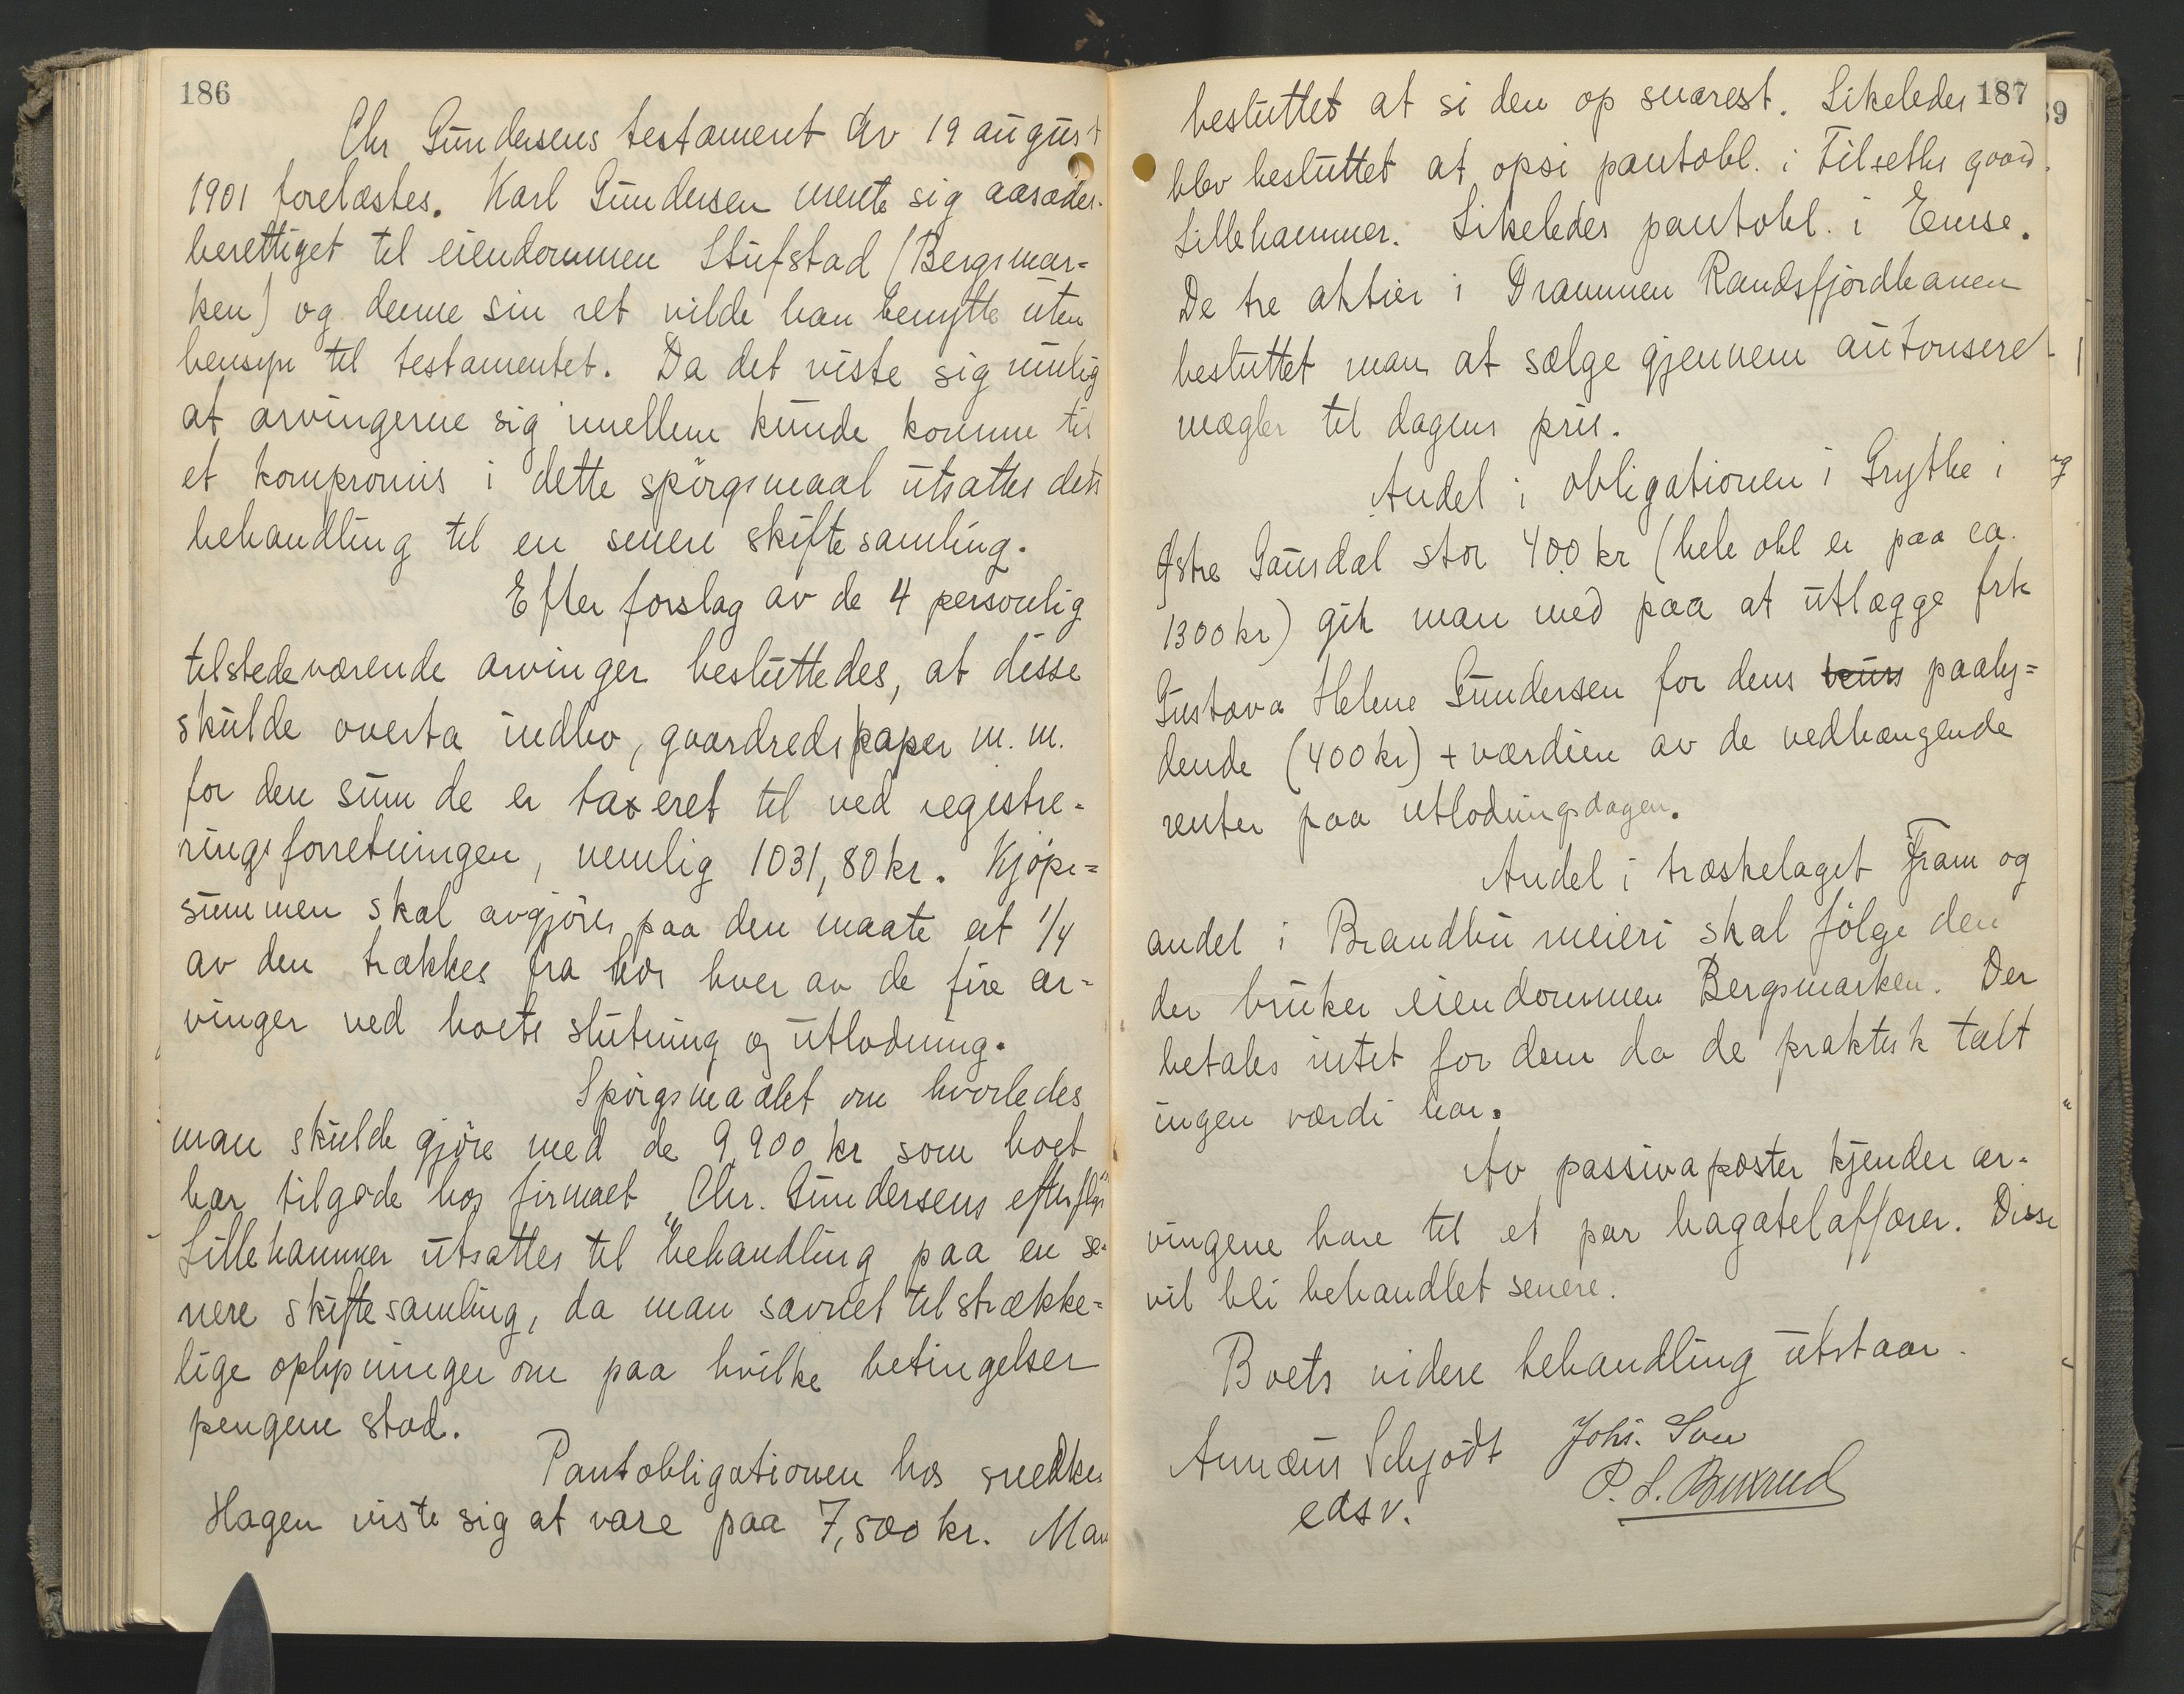 186
Chr Gundersens testament av 19 august
1901 forelæstes. Karl Gundersen mente sig aasædes-
berettiget til eiendommen Stufstad (Bergsmar-
ken) og denne sin ret vilde han benytte uten
hensyn til testamentet. Da det viste sig mulig
at arvingerne sig imellem kunde komme til
et kompromis i dette spörgsmaal utsattes dets
behandling til en senere skiftesamling.
Efter forslag av de 4 personlig
tilstedeværende arvinger besluttedes, at disse
skulde overta indbo, gaardredskaper m. m.
for den sum de er taxeret til ved registre-
ringsforretningen, nemlig 1031,80 kr. Kjöpe-
summen skal avgjöres paa den maate at 1/4
av den trækkes fra hos hver av de fire ar-
vinger ved boets slutning og utlodning.
Spörgsmaalet om hvorledes
man skulde gjöre med de 9,900 kr som boet
har tilgode hos firmaet "Chr. Gundersens efterflg"
Lillehammer utsattes til behandling paa en se-
nere skiftesamling, da man savnet tilstrække-
lige oplysninger om paa hvilke betingelser
pengene stod.
Pantobligationen hos snedker
Hagen viste sig at være paa 7,500 kr. Man
187
besluttet at si den op snarest. Likeledes
blev besluttet at opsi pantobl. i Tilseths gaard,
Lillehammer. Likeledes pantobl. i
De tre aktier i Drammen Randsfjordbanen
besluttet man at sælge gjennem autoriseret
mægler til dagens pris.
Andel i obligationen i Grythe i
Østre Gausdal stor 400 kr (hele obl er paa ca.
1300 kr) gik man med paa at utlægge frk
Gustava Helene Gundersen for dens kurs paaly=
dende (400 kr) + værdien av de vedhængende
renter paa utlodningsdagen.
Andel i træskelaget Fram og
andel i Brandbu meieri skal fölge den
der bruker eiendommen Bergsmarken. Der
betales intet for dem da de praktisk talt
ingen værdi har.
Av passivaposter kjender ar-
vingene bare til et par bagatelaffærer. Disse
vil bli behandlet senere.
Boets videre behandling utstaar.
Annæus Schjödt
edsv.
Johs.